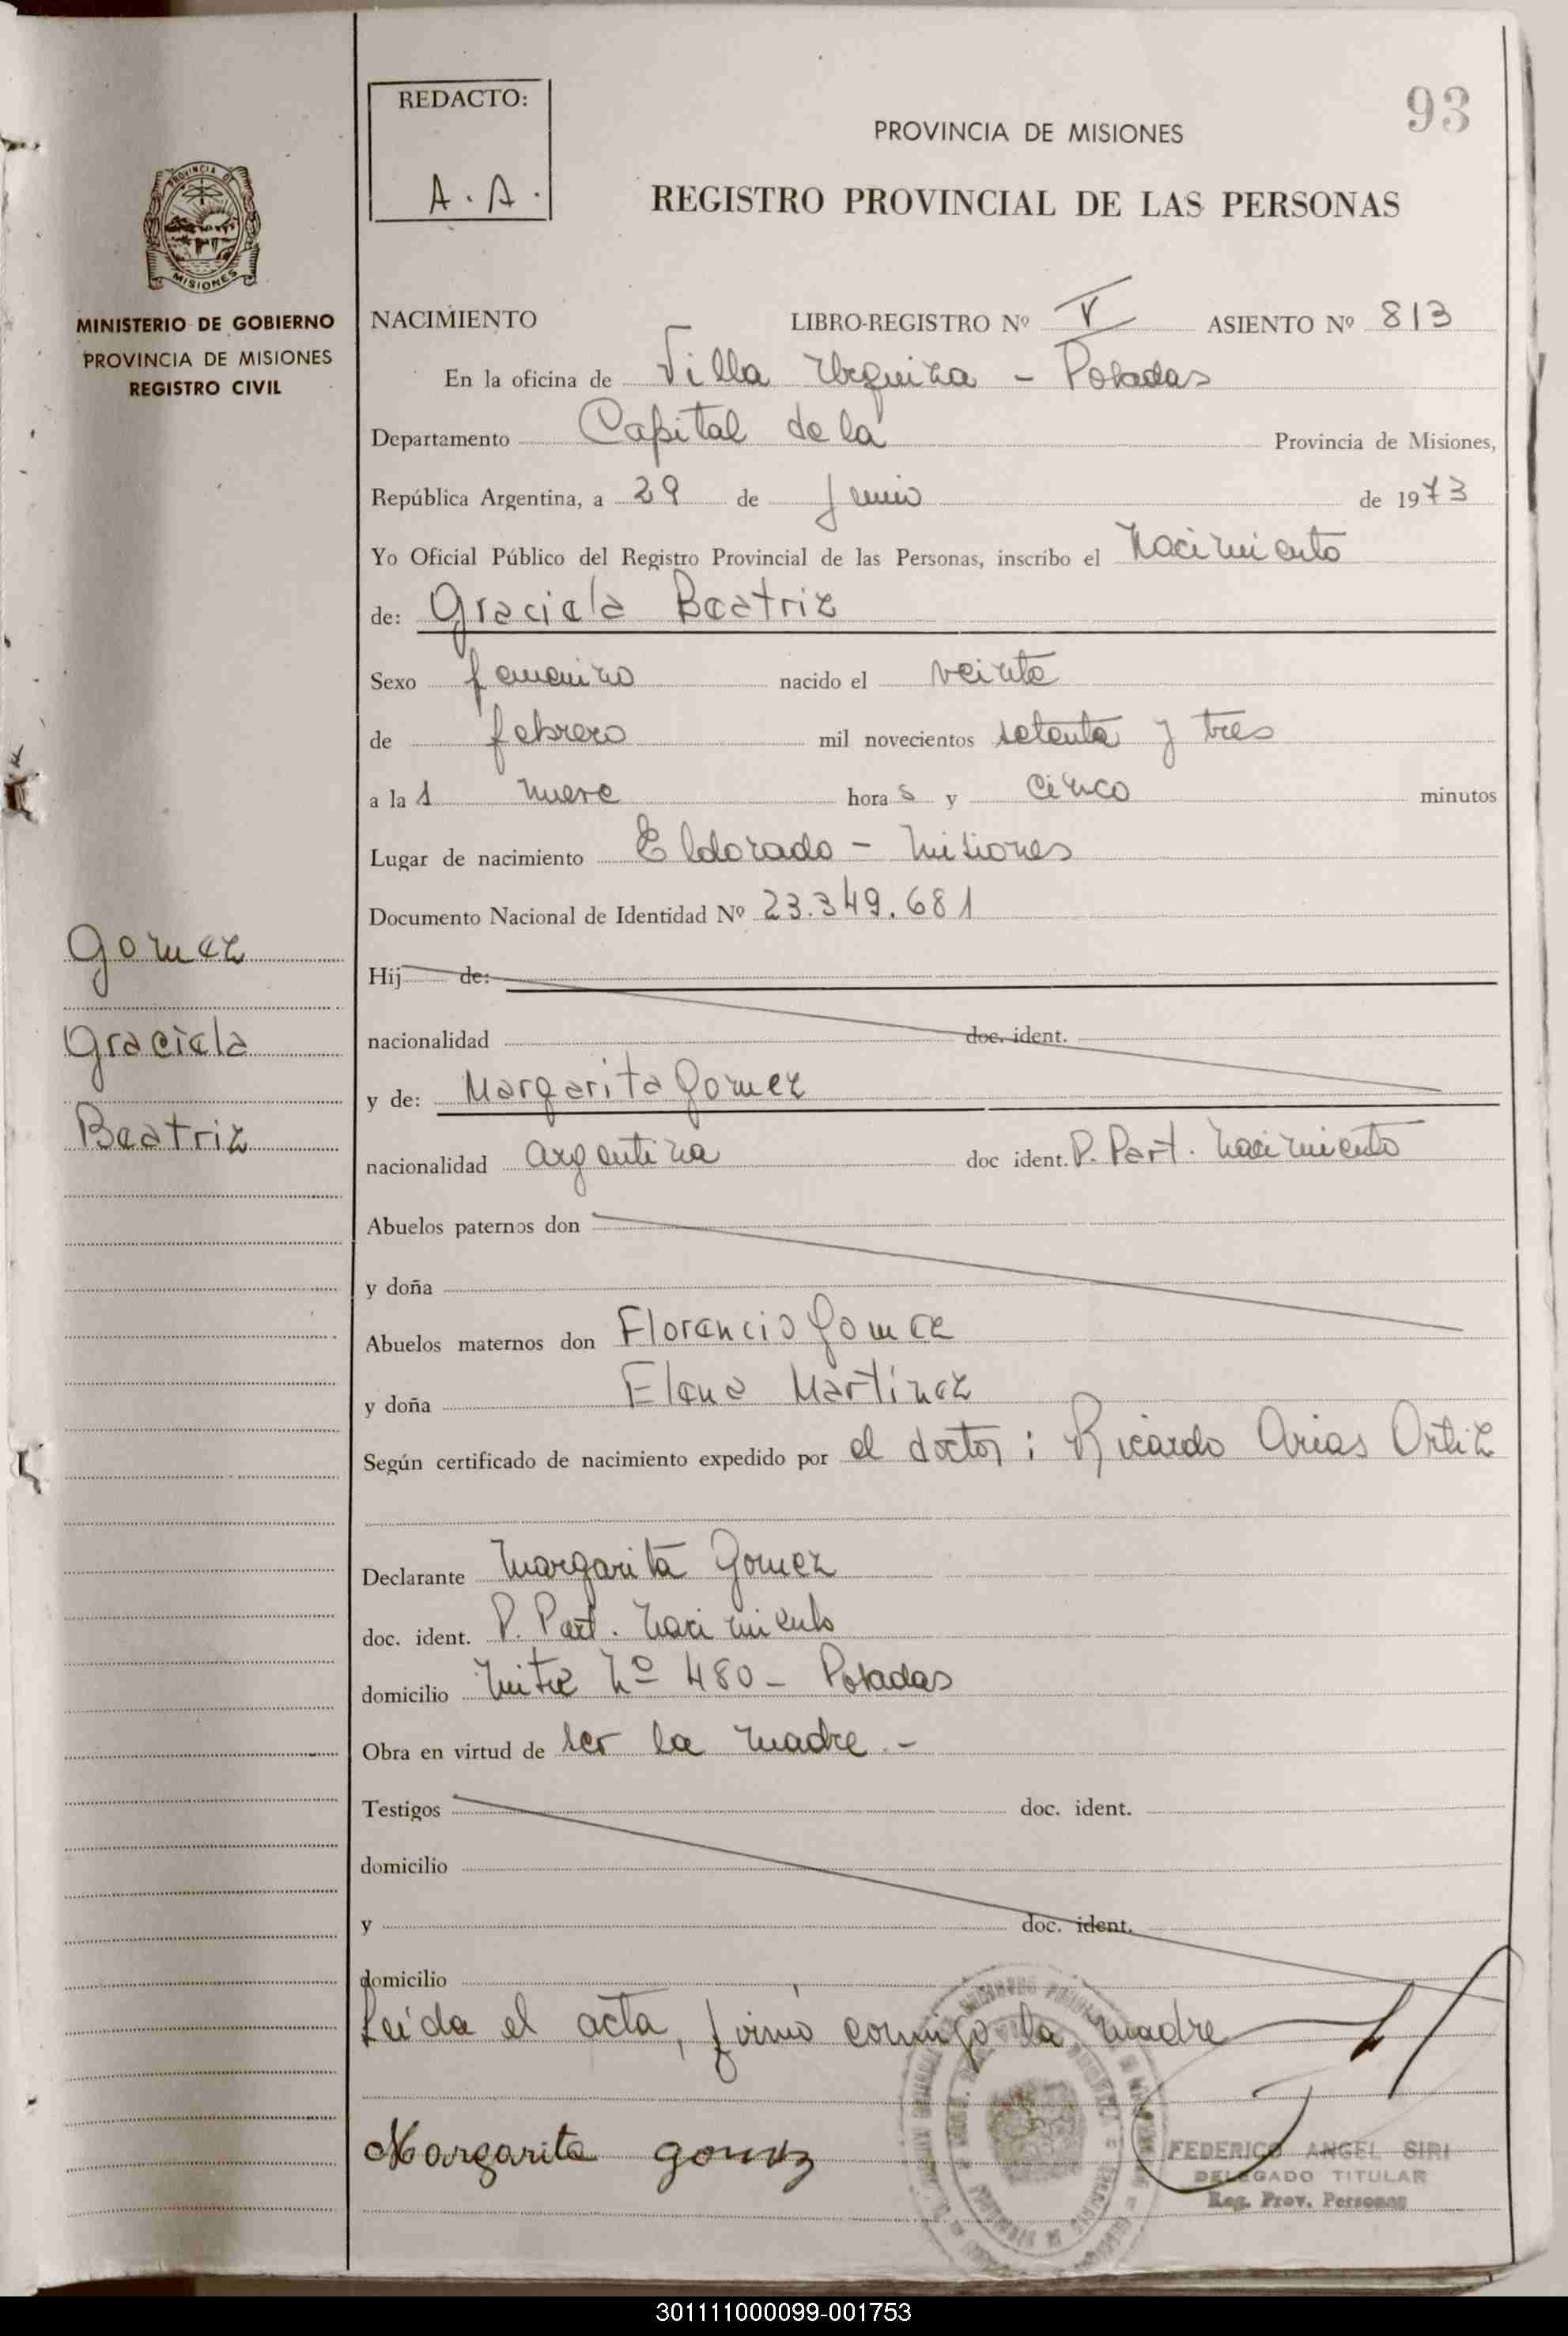 REDACTO:
A. A.
93
PROVINCIA DE MISIONES
REGISTRO PROVINCIAL DE LAS PERSONAS
PROVINCIA DE
MISIONES
MINISTERIO DE GOBIERNO
PROVINCIA DE MISIONES
REGISTRO CIVIL
NACIMIENTO LIBRO-REGISTRO Nº V ASIENTO Nº 813
En la oficina de Villa Urquiza - Posadas
Departamento Capital de la Provincia de Misiones,
República Argentina, a 29 de Junio de 1973
Yo Oficial Público del Registro Provincial de las Personas, inscribo el Nacimiento
de: Graciela Beatriz
Sexo femenino nacido el veinte
de febrero mil novecientos setenta y tres
a la s nueve hora s y cinco minutos
Lugar de nacimiento Eldorado - Misiones
Documento Nacional de Identidad Nº 23.349.681
Gomez
Graciela
Beatriz
Hij de:
nacionalidad doc. ident.
y de: Margarita Gomez
nacionalidad argentina doc ident. P. Part. Nacimiento
Abuelos paternos don
y doña
Abuelos maternos don Florencio Gomez
y doña Elena Martinez
Según certificado de nacimiento expedido por el doctor: Ricardo Arias Ortiz
Declarante Margarita Gomez
doc. ident. P. Part. Nacimiento
domicilio Mitre Nº 480 - Posadas
Obra en virtud de ser la madre.-
Testigos doc. ident.
domicilio
y doc. ident.
domicilio
Leída el acta, firmó conmigo la madre
Margarita gomez
FEDERICO ANGEL SIRI
DELEGADO TITULAR
Reg. Prov. Personas
301111000099-001753